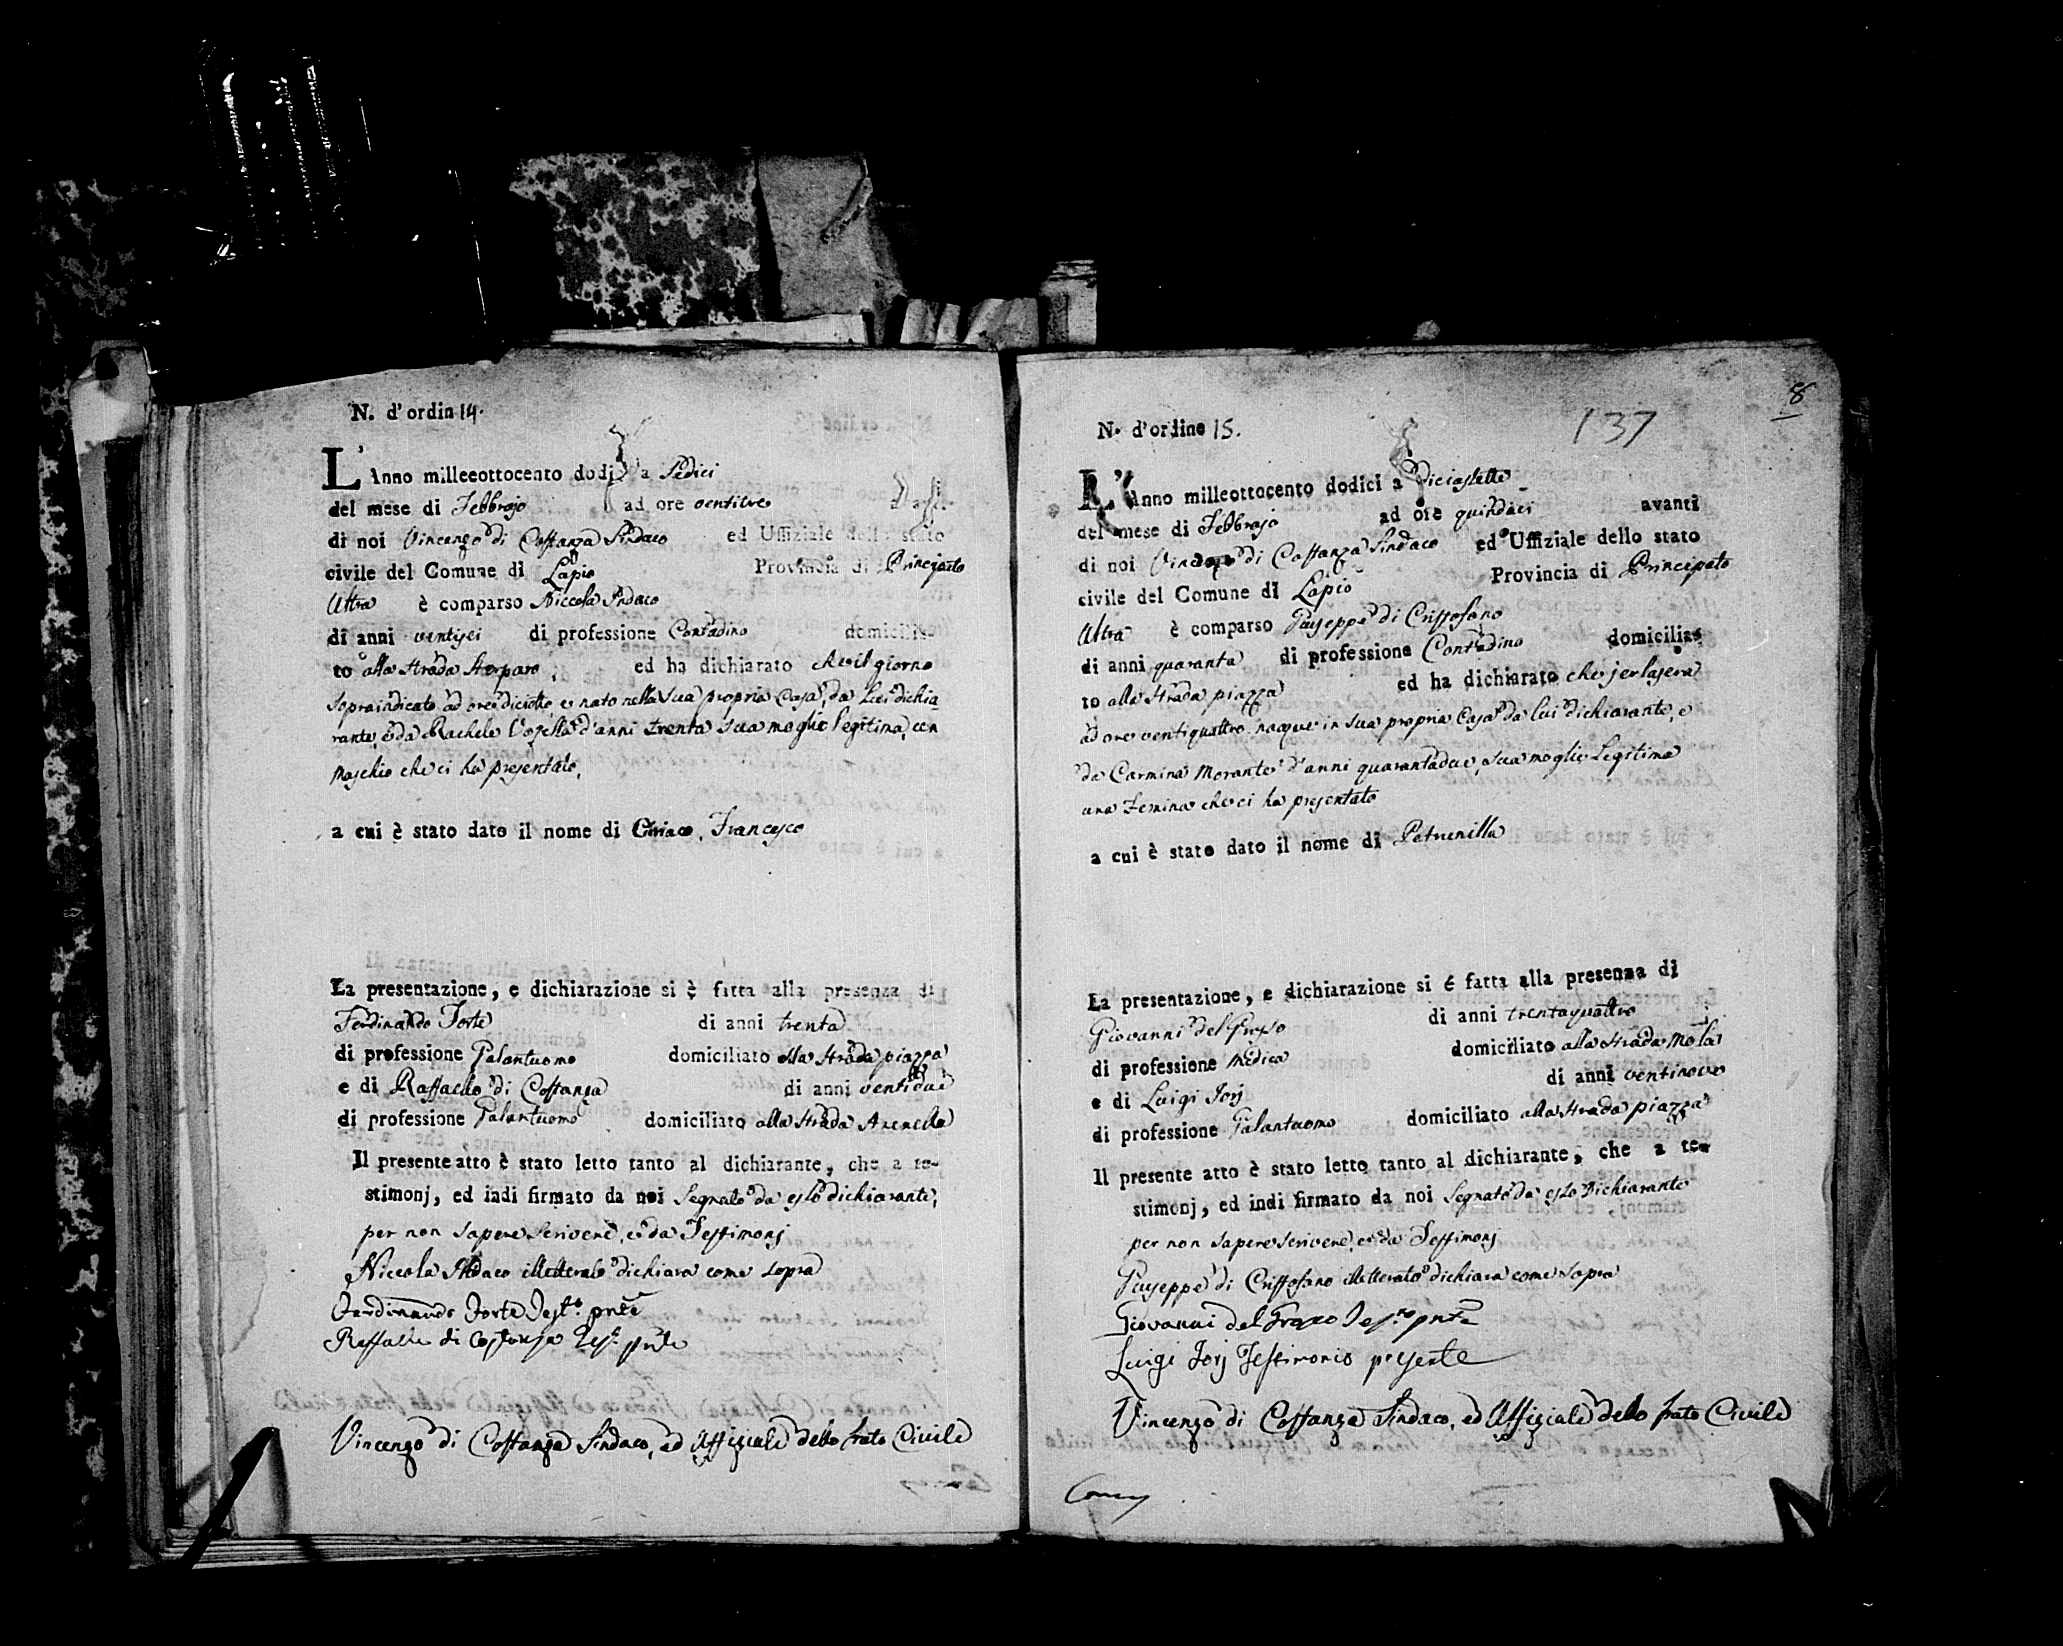 N. d'ordin 14.
L'Anno milleeottocento dodi a Sedici
del mese di Febbrajo ad ore ventitre
di noi Vincenzo di Costanza Sindaco ed Uffiziale dello stato
civile del Comune di Lapio Provincia di Principato
Ultra è comparso Niccola
di anni ventisei di professione Contadino domicilia-
to alla strada ed ha dichiarato che il giorno
sopraindicato ad ore diciotto, è nato nella sua propria Casa, da lui dichia-
rante, e da Rachele d'anni trenta sua moglie legitima, un
maschio che ci ha presentato,
a cui è stato dato il nome di Ciriaco, Francesco
La presentazione, e dichiarazione si è fatta alla presenza di
Ferdinando Forte di anni trenta
di professione Galantuomo domiciliato alla strada piazza
e di Raffaele di Costanza di anni ventidue
di professione Galantuomo domiciliato alla strada Arenella
Il presente atto è stato letto tanto al dichiarante, che a te-
stimonj, ed indi firmato da noi Segnato da esso dichiarante,
per non sapere scrivere, e da Testimonj
Niccola illetterato dichiara come sopra
Ferdinando Forte Test.º pnte
Raffaele di Costanza Test. pnte
Vincenzo di Costanza Sindaco, ed Uffiziale dello stato Civile
8
137
N. d'ordine 15.
L'Anno milleottocento dodici a Diciasette
del mese di Febbrajo ad ore quindeci avanti
di noi Vincenzo di Costanza Sindaco ed Uffiziale dello stato
civile del Comune di Lapio Provincia di Principato
Ultra è comparso Giuseppe di Crissofano
di anni quaranta di professione Contadino domicilia-
to alla strada piazza ed ha dichiarato che jerlasera
ad ore ventiquattro nacque in sua propria Casa da lui dichiarante, e
da Carmina Morante d'anni quarantadue, sua moglie Legitima
una Femina che ci ha presentato
a cui è stato dato il nome di Petrunilla
La presentazione, e dichiarazione si é fatta alla presenza di
Giovanni del Grosso di anni trentaquattro
di professione Medico domiciliato alla strada Mola
e di Luigi Jorj di anni ventinove
di professione Galantuomo domiciliato alla strada piazza
Il presente atto è stato letto tanto al dichiarante, che a te-
stimonj, ed indi firmato da noi Segnato da esso Dichiarante
per non sapere scrivere, e da Testimonj
Giuseppe di Crissofano illetterato dichiara come sopra
Giovanni del Grosso Tes.º pnte
Luigi Jorj Testimonio presente
Vincenzo di Costanza Sindaco, ed Uffiziale dello stato Civile